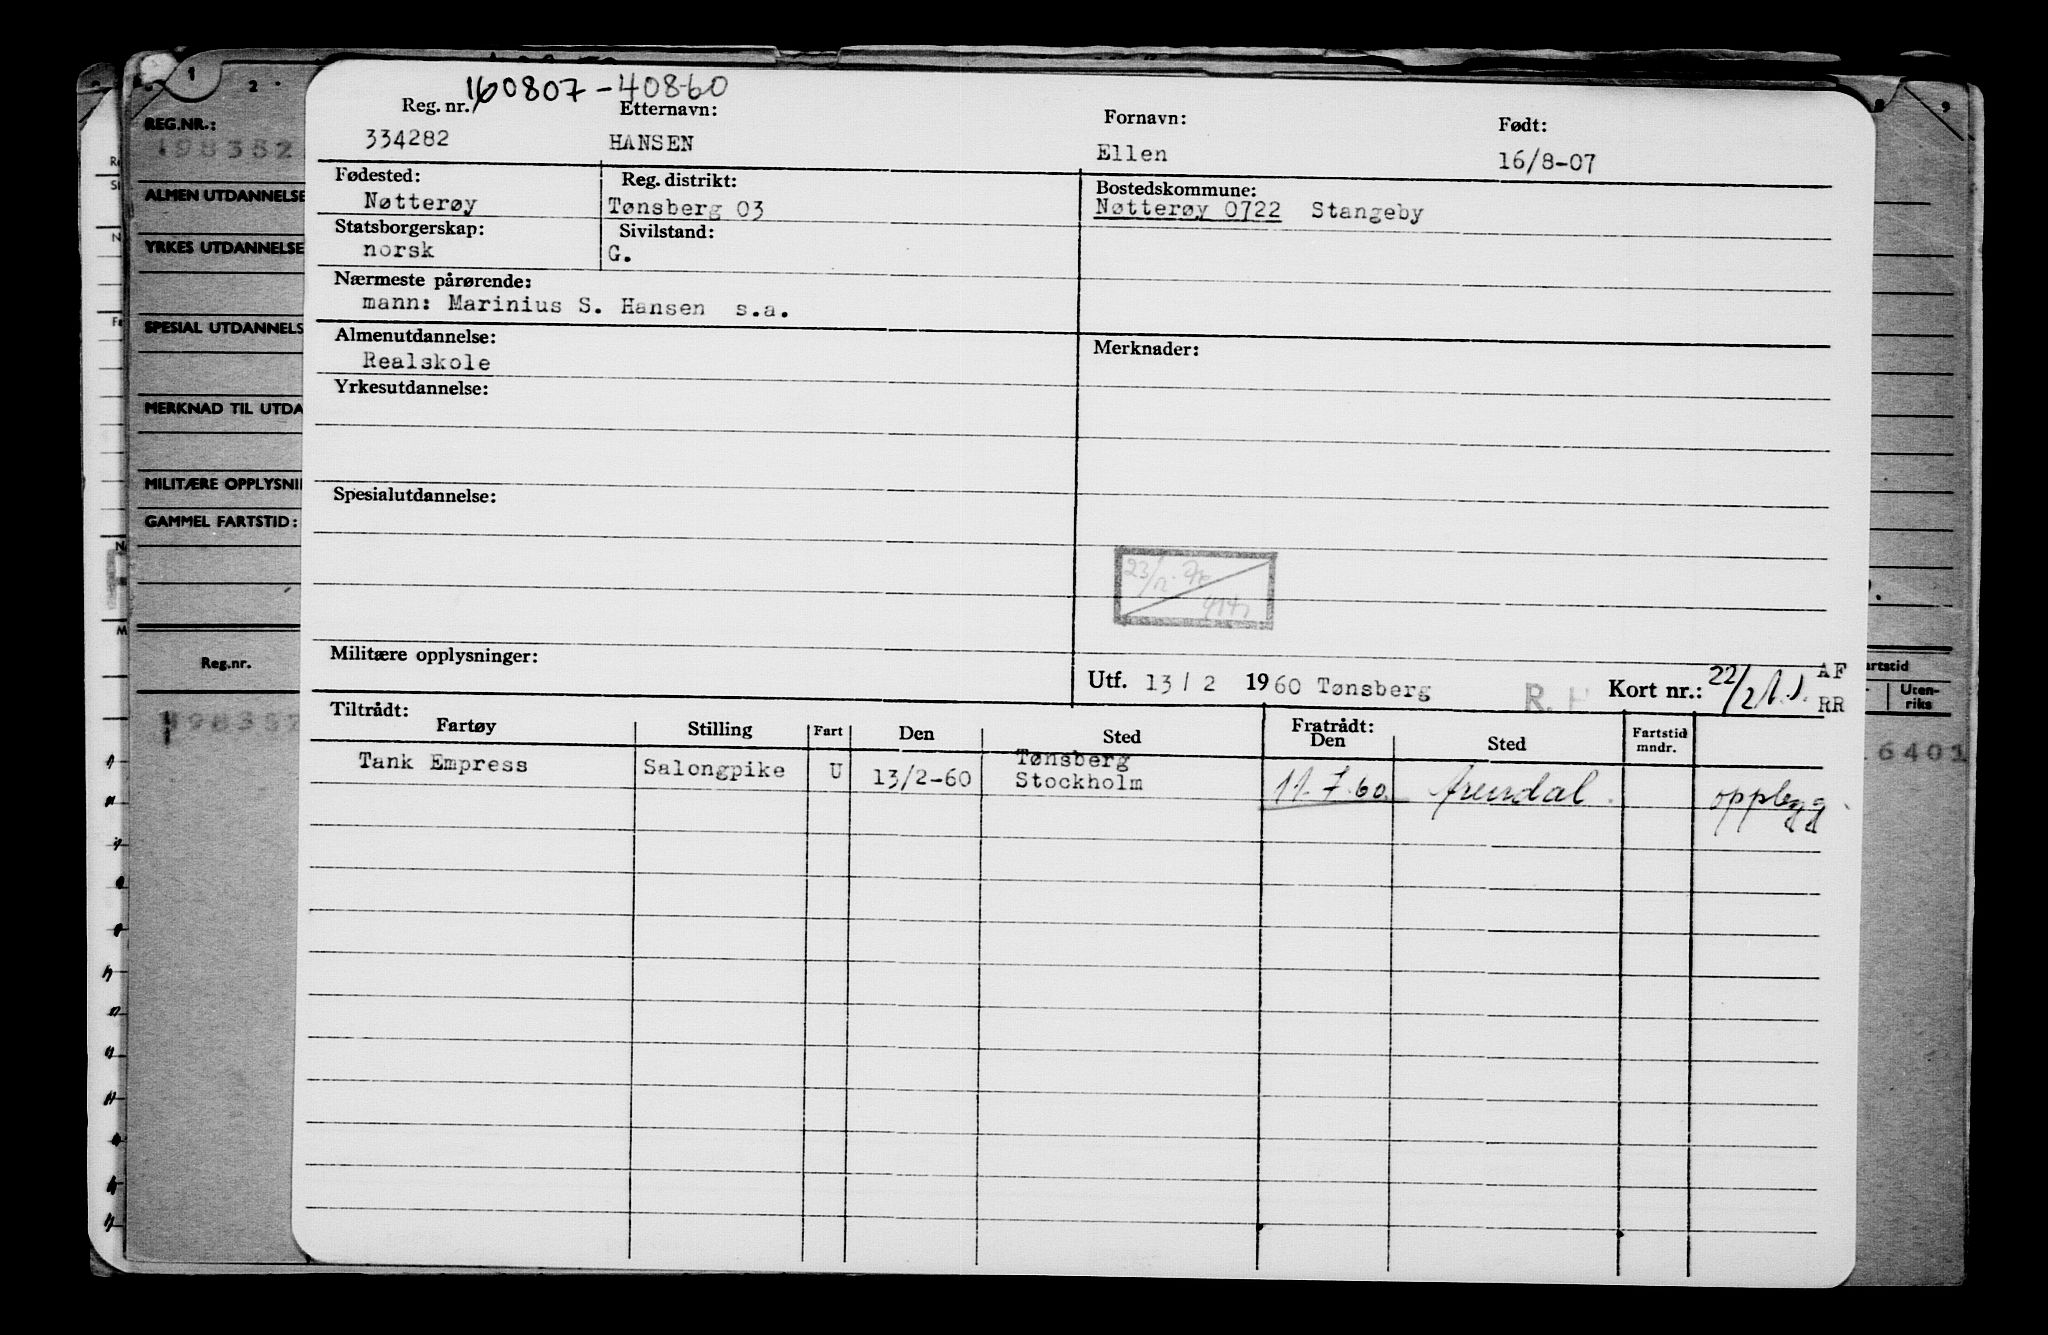 160807-40860
Reg. nr. Etternavn: Fornavn: Født:
334282 HANSEN Ellen 16/8-07
Fødested: Reg. distrikt: Bostedskommune:
Nøtterøy Tønsberg 03 Nøtterøy 0722 Stangeby
Statsborgerskap: Sivilstand:
norsk G.
Nærmeste pårørende:
mann: Marinius S. Hansen s.a.
Almenutdannelse: Merknader:
Realskole
Yrkesutdannelse:
Spesialutdannelse:
Militære opplysninger:
Utf. 13/2 1960 Tønsberg R. H Kort nr.: 22/2 AF
RR
Tiltrådt: Fratrådt:
Fartøy Stilling Fart Den Sted Den Sted Fartstid mndr.
Tank Empress Salongpike U 13/2-60 Tønsberg
Stockholm 11.7.60 Arendal opplegg
1 2 8 9
REG.NR.:
198382
ALMEN UTDANNELSE
YRKES UTDANNELSE
SPESIAL UTDANNELS
MERKNAD TIL UTDA
MILITÆRE OPPLYSNI
GAMMEL FARTSTID:
Reg.nr.
artstid
Uten-
riks
6401